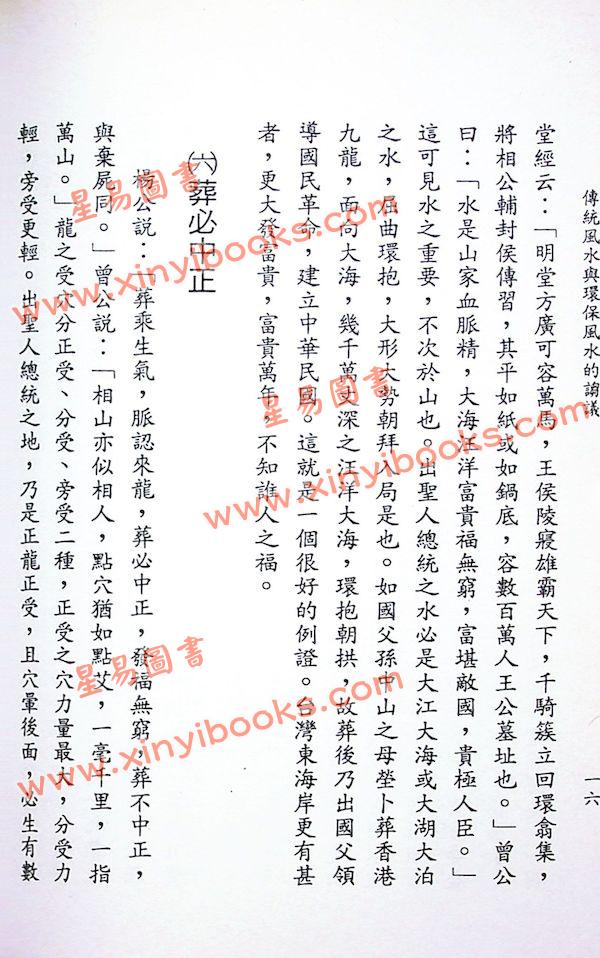 傳統風水與環保風水的諍議
一六
堂經云：「明堂方廣可容萬馬，王侯陵寢雄霸天下，千騎簇立回環翕集，
將相公輔封侯傳習，其平如紙或如鍋底，容數百萬人王公墓址也。」曾公
曰：「水是山家血脈精，大海汪洋富貴福無窮，富堪敵國，貴極人臣。」
這可見水之重要，不次於山也。出聖人總統之水必是大江大海或大湖大泊
之水，屈曲環抱，大形大勢朝拜入局是也。如國父孫中山之母塋卜葬香港
九龍，面向大海，幾千萬丈深之汪洋大海，環抱朝拱，故葬後乃出國父領
導國民革命，建立中華民國。這就是一個很好的例證。台灣東海岸更有甚
者，更大發富貴，富貴萬年，不知誰人之福。
㈥葬必中正
楊公說：「葬乘生氣，脈認來龍，葬必中正，發福無窮，葬不中正，
與棄屍同。」曾公說：「相山亦似相人，點穴猶如點艾，一毫千里，一指
萬山。」龍之受穴分正受、分受、旁受二種，正受之穴力量最大，分受力
輕，旁受更輕。出聖人總統之地，乃是正龍正受，且穴暈後面，必生有數
星易圖書
www.xinyibooks.com
星易圖書
www.xinyibooks.com
星易圖書
www.xinyibooks.com
星易圖書
www.xinyibooks.com